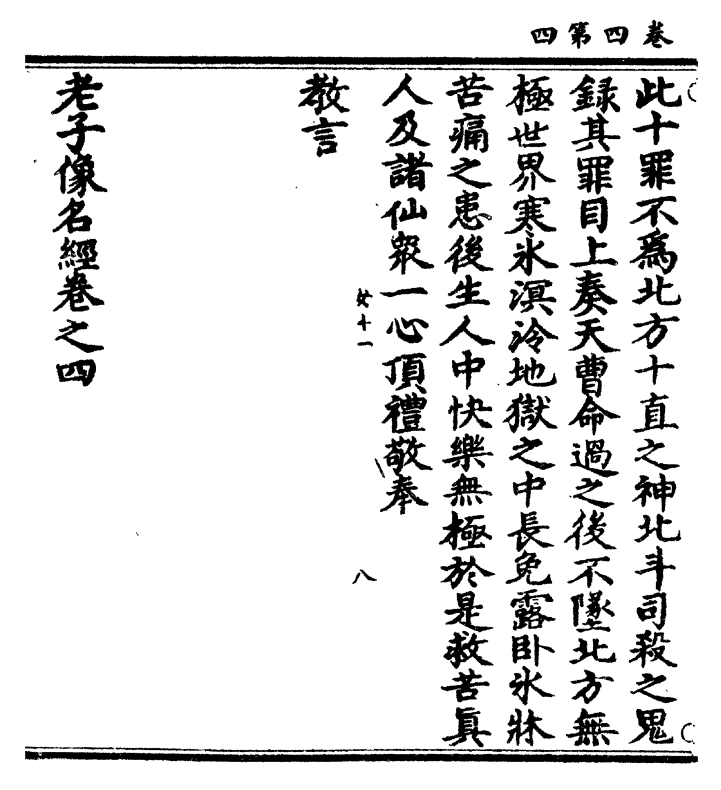 卷四第四
此十罪不爲北方十直之神北斗司殺之鬼
録其罪目上奏天曹命過之後不墜北方無
極世界寒氷溟泠地獄之中長免露卧氷牀
苦痛之患後生人中快樂無極於是救苦眞
人及諸仙衆一心頂禮敬奉
八
教言
老子像名經卷之四